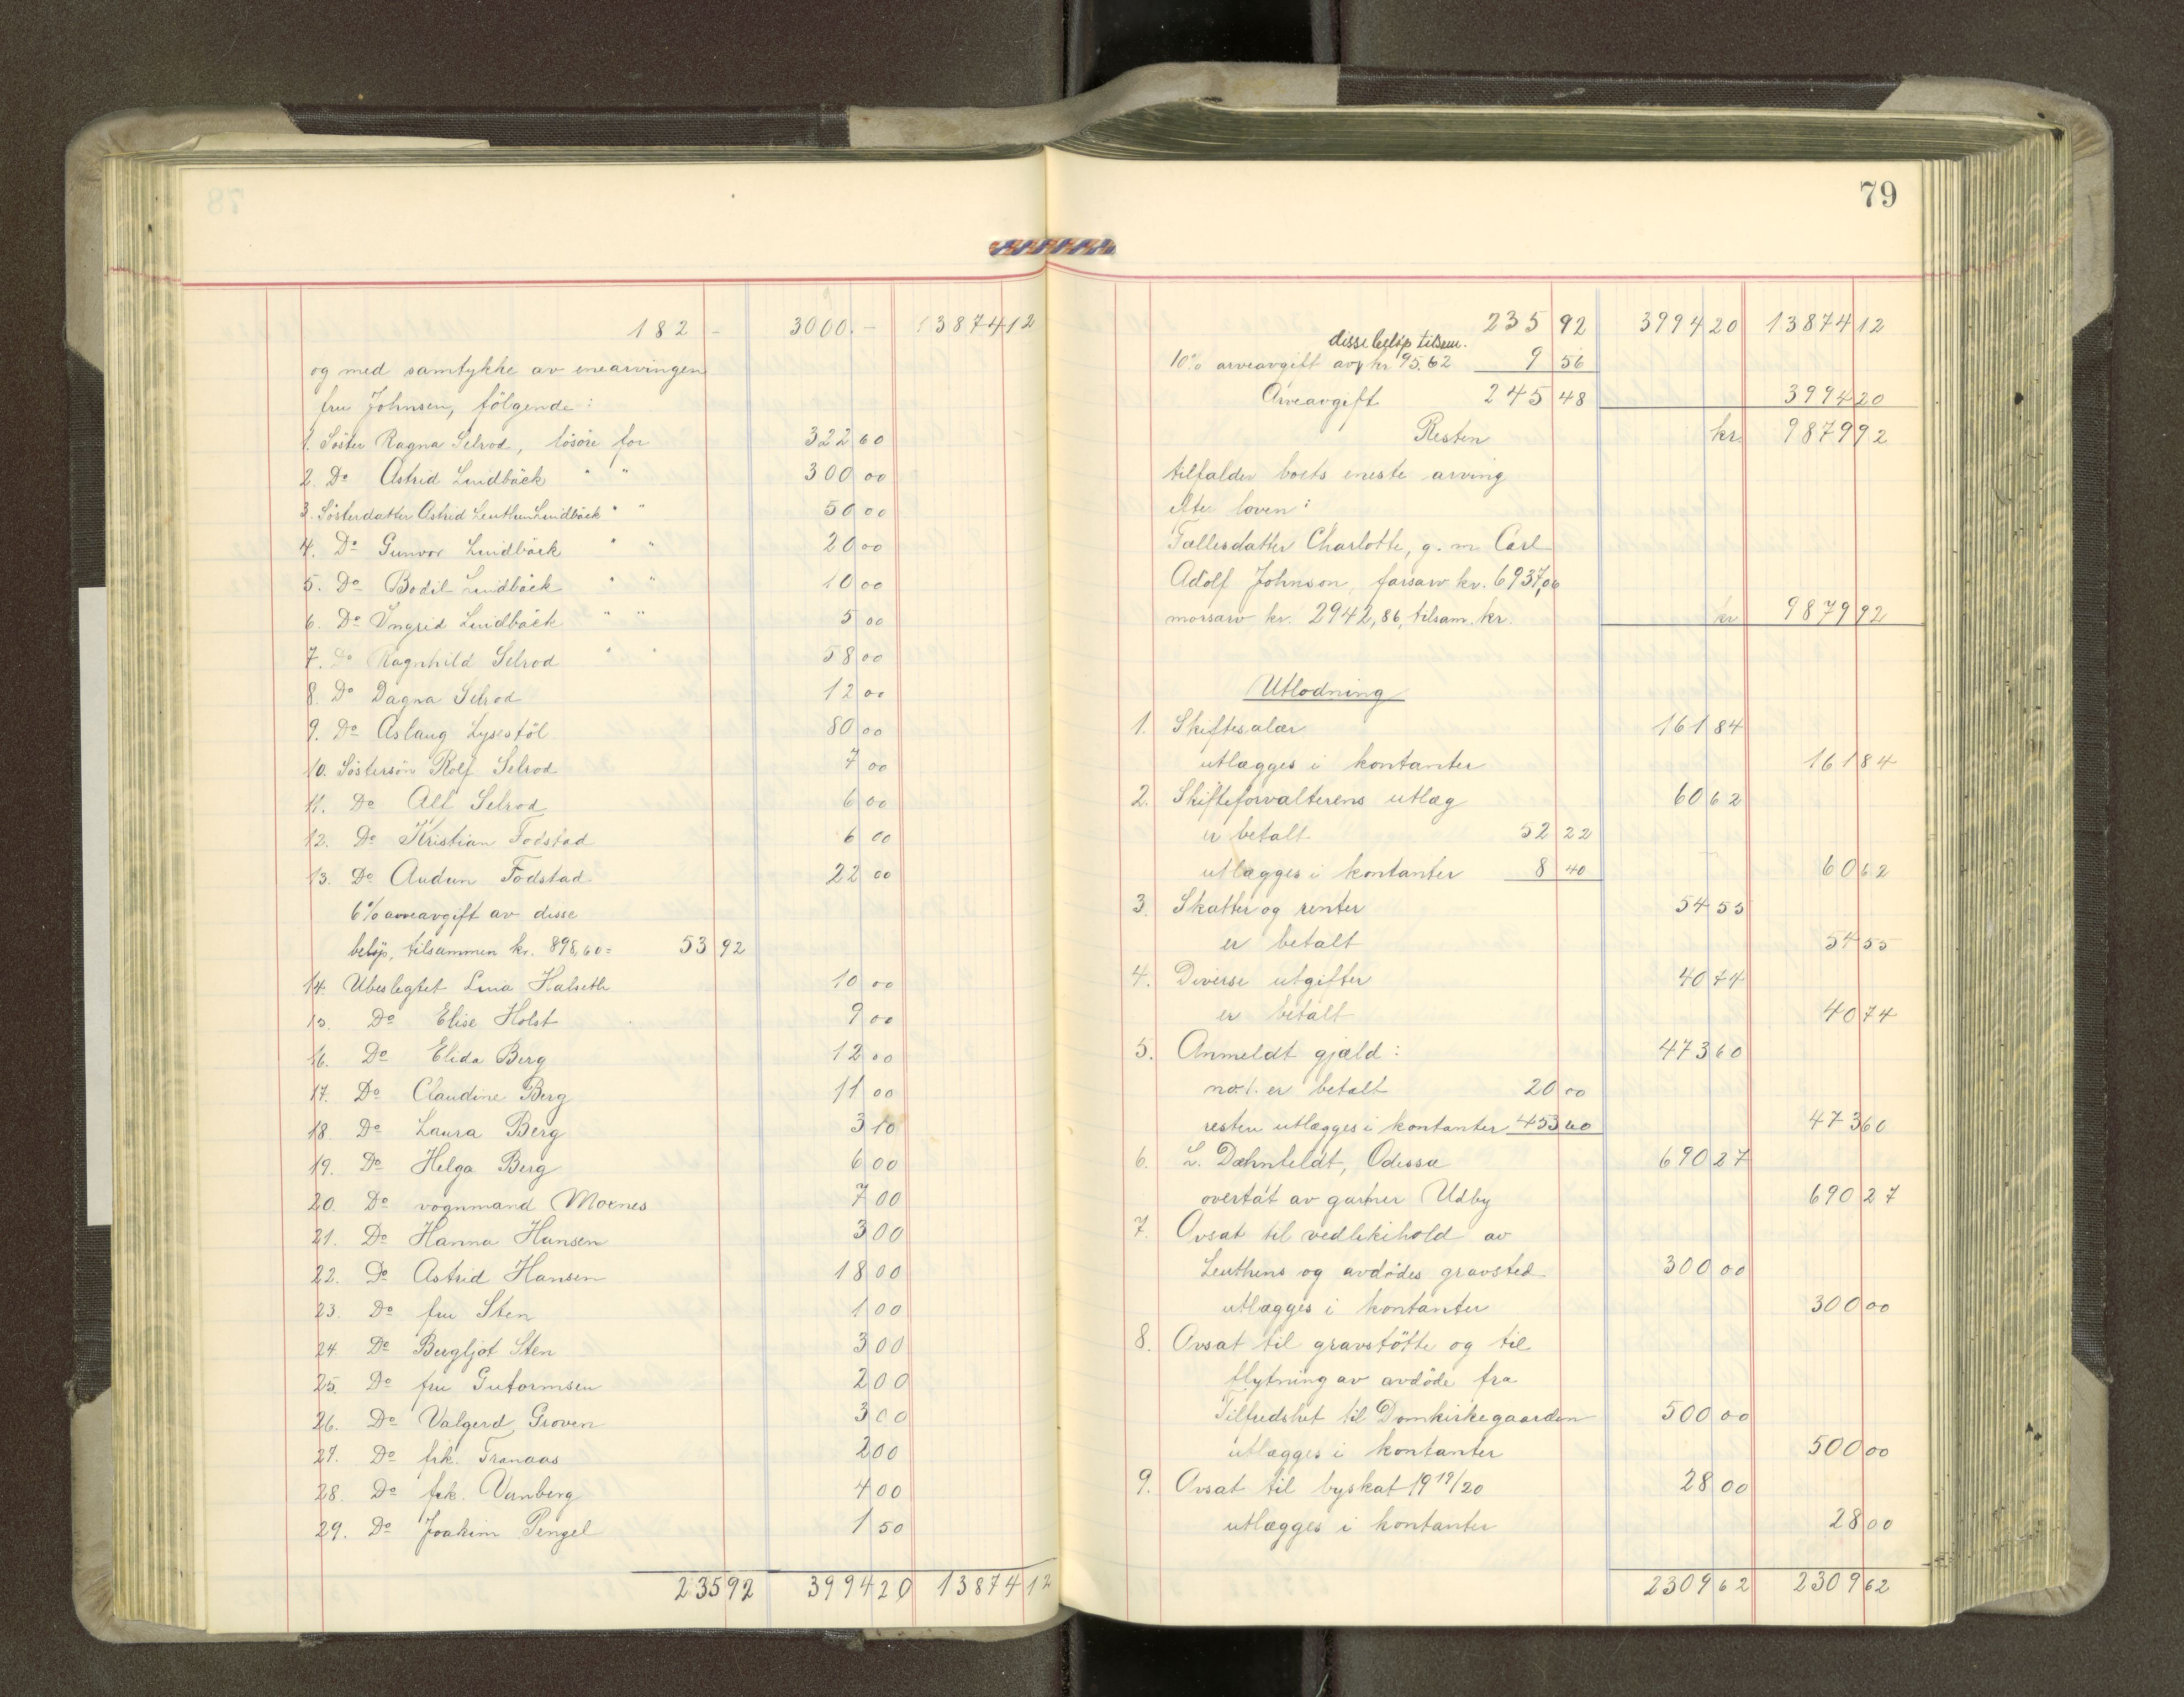 182 - 3000.- 13874 12
og med samtykke av enearvingen
fru Johnsen, følgende:
1. Søster Ragna Selrod, løsøre for 322 60
2. Do Astrid Lindbäck " " 300 00
3. Søsterdatter Astrid Leuthen Lindbäck " " 50 00
4. Do Gunvor Lindbäck " " 20 00
5. Do Bodil Lindbäck " " 10 00
6. Do Ingrid Lindbäck " " 5 00
7. Do Ragnhild Selrod " " 58 00
8. Do Dagna Selrod 12 00
9. Do Aslaug Lysestöl 80 00
10. Søstersøn Rolf Selrod 7 00
11. Do Alf Selrod 6 00
12. Do Kristian Fodstad 6 00
13. Do Audun Fodstad 22 00
6% arveavgift av disse
beløp, tilsammen kr. 898,60 = 53 92
14. Ubeslegtet Lina Halseth 10 00
15. Do Elise Holst 9 00
16. Do Elida Berg 12 00
17. Do Claudine Berg 11 00
18. Do Laura Berg 3 10
19. Do Helga Berg 6 00
20. Do vognmand Moxnes 7 00
21. Do Hanna Hansen 3 00
22. Do Astrid Hansen 18 00
23. Do fru Sten 1 00
24. Do Bergljot Sten 3 00
25. Do fru Gutormsen 2 00
26. Do Valgerd Groven 3 00
27. Do frk. Tranaas 2 00
28. Do frk. Vanberg 4 00
29. Do Joakim Pengel 1 50
235 92 3994 20 13874 12
79
235 92 3994 20 13874 12
disse beløp tilsam.
10% arveavgift av kr 95.62 9 56
Arveavgift 245 48 3994 20
Resten kr. 9879 92
tilfalder boets eneste arving
efter loven:
Fællesdatter Charlotte, g. m. Carl
Adolf Johnson, farsarv kr. 6937,06
morsarv kr. 2942,86, tilsam. kr. kr 9879 92
Utlodning
1. Skiftesalær 161 84
utlægges i kontanter 161 84
2. Skifteforvalterens utlæg 60 62
er betalt 52 22
utlægges i kontanter 8 40 60 62
3. Skatter og renter 54 55
er betalt 54 55
4. Diverse utgifter 40 74
er betalt 40 74
5. Anmeldt gjæld: 473 60
no. 1. er betalt 20 00
resten utlægges i kontanter 453 60 473 60
6. L. Dæhnfeldt, Odense 690 27
overtat av gartner Udby 690 27
7. Avsat til vedlikehold av
Leuthens og avdødes gravsted 300 00
utlægges i kontanter 300 00
8. Avsat til gravstøtte og til
flytning av avdøde fra
Tilfredshet til Domkirkegaarden 500 00
utlægges i kontanter 500 00
9. Avsat til byskat 19 19/20 28 00
utlægges i kontanter 28 00
2309 62 2309 62